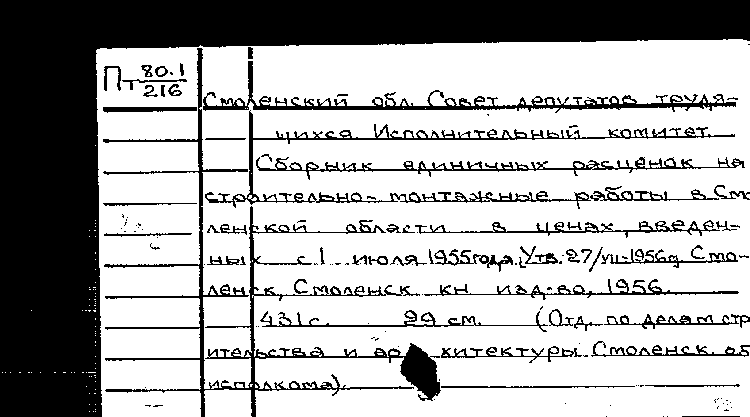 Пт 80.1
216
Смоленский обл. Совет депутатов трудя-
щихся. Исполнительный комитет.
Сборник единичных расценок на
строительно-монтажные работы в Смо
ленской области в ценах, введен-
ных с 1 июля 1955 года. Утв. 27/VII-1956 г. Смо-
ленск, Смоленск. кн. изд-во, 1956.
431 с. 29 см. (Отд. по делам стр
ительства и архитектуры Смоленск. об
исполкома).